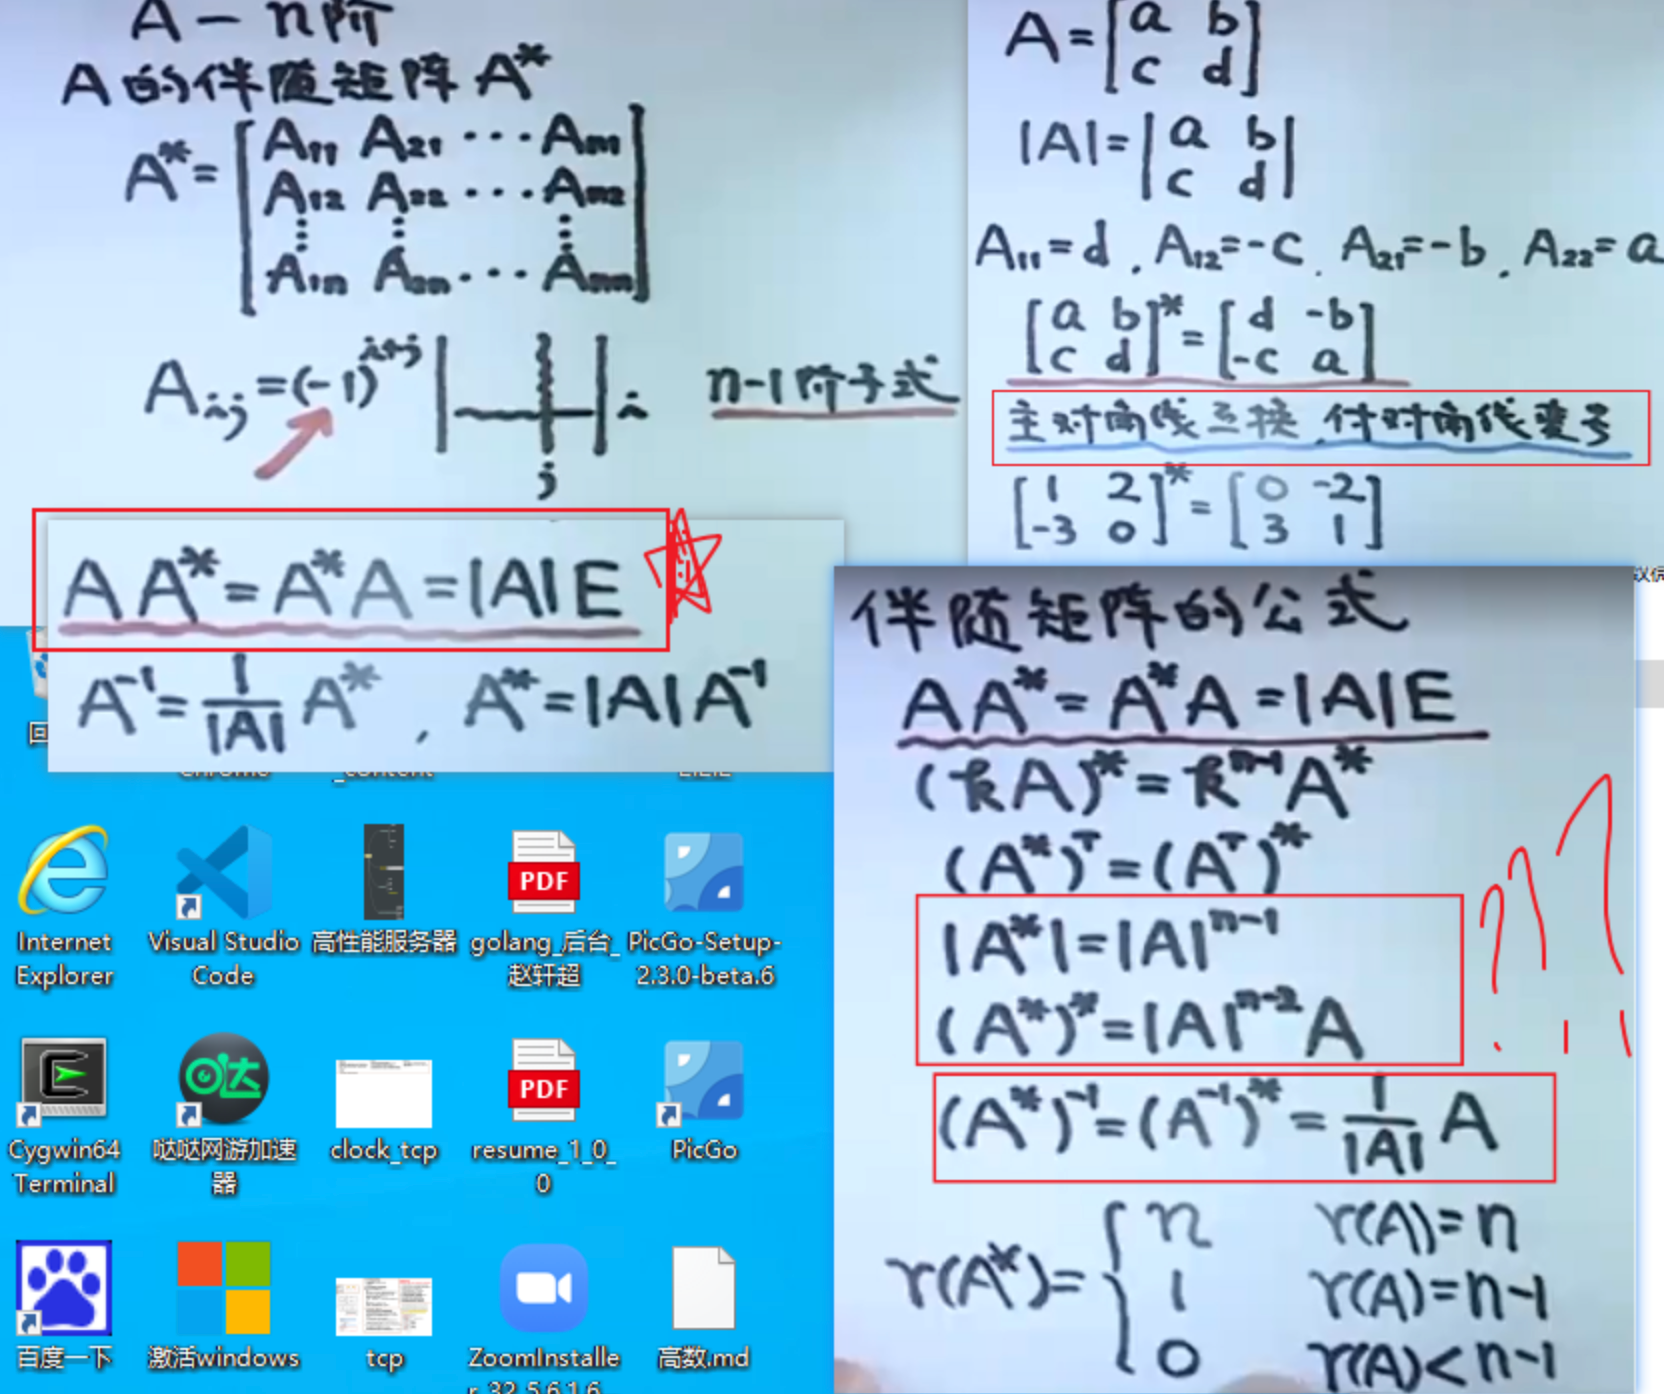 A - n阶
A的伴随矩阵A*
A* = [A₁₁ A₂₁ ··· Aₙ₁
A₁₂ A₂₂ ··· Aₙ₂
⋮ ⋮ ⋮
A₁ₙ A₂ₙ ··· Aₙₙ]
Aᵢⱼ = (-1)^(i+j) | | i
n-1阶子式
j
AA* = A*A = |A|E
A⁻¹ = 1/|A| A* , A* = |A|A⁻¹
A = [a b
c d]
|A| = |a b
c d|
A₁₁ = d , A₁₂ = -c . A₂₁ = -b . A₂₂ = a
[a b
c d]* = [d -b
-c a]
主对角线互换 付对角线变号
[1 2
-3 0]* = [0 -2
3 1]
伴随矩阵的公式
AA* = A*A = |A|E
(kA)* = kⁿ⁻¹A*
(A*)ᵀ = (Aᵀ)*
|A*| = |A|ⁿ⁻¹
(A*)* = |A|ⁿ⁻²A
???
(A*)⁻¹ = (A⁻¹)* = 1/|A| A
r(A*) = { n r(A) = n
1 r(A) = n-1
0 r(A) < n-1
回
Chrome
_content
Internet Explorer
Visual Studio Code
高性能服务器
PDF
golang_后台_赵轩超
PicGo-Setup-2.3.0-beta.6
Cygwin64 Terminal
哒哒网游加速器
clock_tcp
PDF
resume_1_0_0
PicGo
百度一下
激活windows
tcp
ZoomInstaller_32_5.6.1.6
高数.md